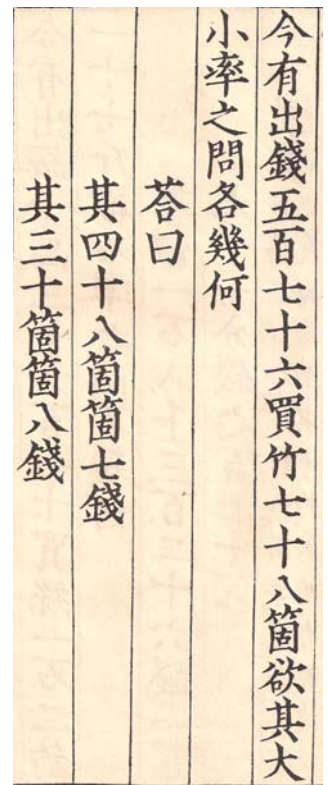 今有出錢五百七十六買竹七十八箇欲其大
小率之問各幾何
荅曰
其四十八箇箇七錢
其三十箇箇八錢